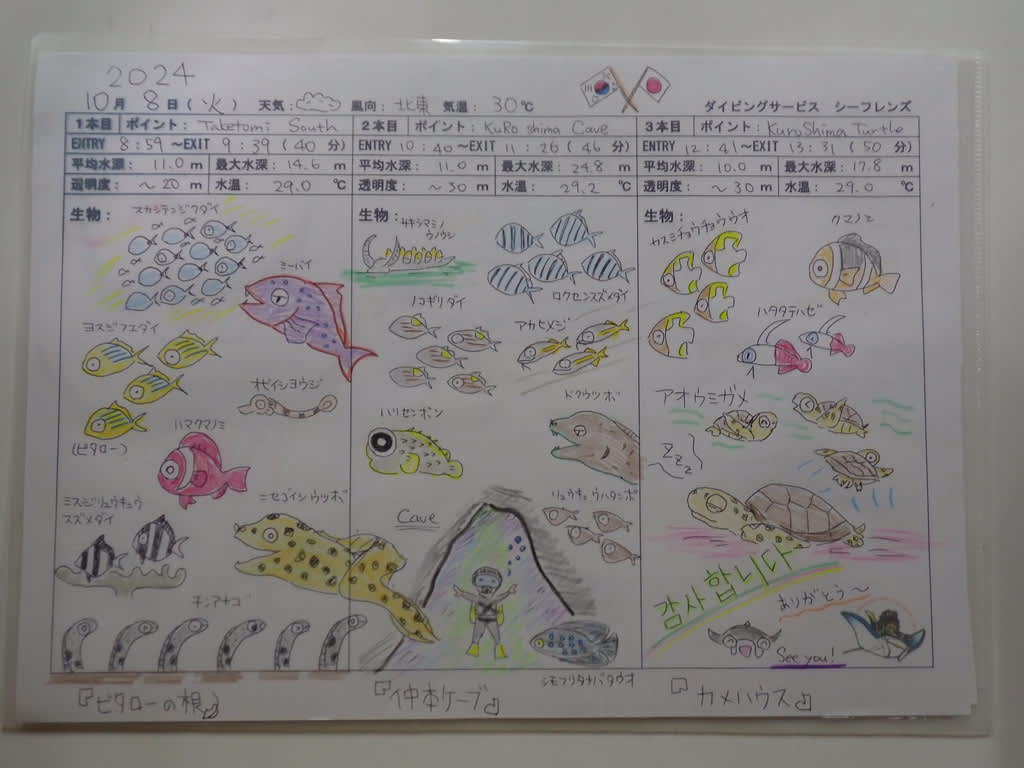 2024
10月 8日(火) 天気: 風向: 北東 気温: 30℃ ダイビングサービス シーフレンズ
1本目 ポイント: Taketomi South
ENTRY 8:59 ~EXIT 9:39 (40 分)
平均水深: 11.0 m 最大水深: 14.6 m
透明度: ~20 m 水温: 29.0 ℃
生物:
スカシテンジクダイ
ミーバイ
ヨスジフエダイ
オビイシヨウジ
(ビタロー)
ハマクマノミ
ミスジリュウキュウ
スズメダイ
ニセゴイシウツボ
チンアナゴ
『ビタローの根』
2本目 ポイント: KuRo shima Cave
ENTRY 10:40 ~EXIT 11:26 (46 分)
平均水深: 11.0 m 最大水深: 24.8 m
透明度: ~30 m 水温: 29.2 ℃
生物:
サキシマミノ
ウミウシ
ロクセンスズメダイ
ノコギリダイ
アカヒメジ
ハリセンボン
ドクウツボ
Cave
リュウキュウハタンポ
シモフリタナバタウオ
『仲本ケーブ』
3本目 ポイント: KuroShima Turtle
ENTRY 12:41 ~EXIT 13:31 (50 分)
平均水深: 10.0 m 最大水深: 17.8 m
透明度: ~30 m 水温: 29.0 ℃
生物:
カスミチョウチョウウオ
クマノミ
ハタタテハゼ
アオウミガメ
ZZZ
감사합니다
ありがとう~
See you!
『カメハウス』